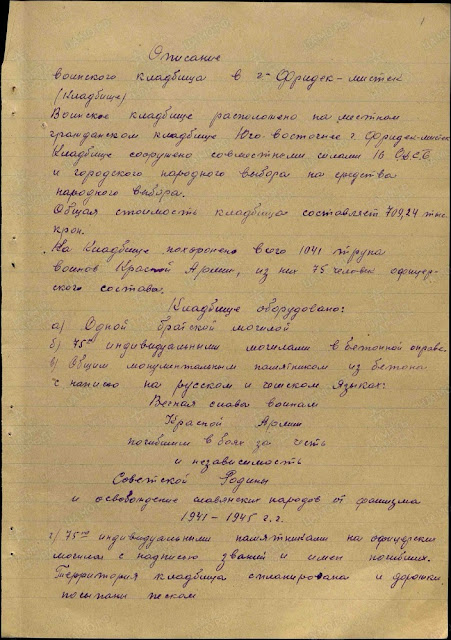 1
Описание
воинского кладбища в г. Фридек-мистек
(кладбище)
Воинское кладбище расположено на местном
гражданском кладбище Юго-восточнее г. Фридек-мистек
Кладбище сооружено совместными силами
и городского народного выбора на средства
народного выбора.
Общая стоимость кладбища составляет 709,24 тыс.
крон.
На кладбище похоронено всего 1041 трупа
воинов Красной Армии, из них 75 человек офицер-
ского состава.
Кладбище оборудовано:
а) Одной братской могилой
б) 75ю индивидуальными могилами в бетонной оправе
в) Общим монументальным памятником из бетона
с написю на русском и чешском языках:
Вечная слава воинам
Красной Армии
погибшим в боях за честь
и независимость
Советской Родины
и освобождение славянских народов от фашизма
1941 – 1945 г.г.
г) 75ю индивидуальными памятниками на офицерских
могилах с надписью званий и имен погибших.
Территория кладбища спланирована и дорожки
посыпаны песком